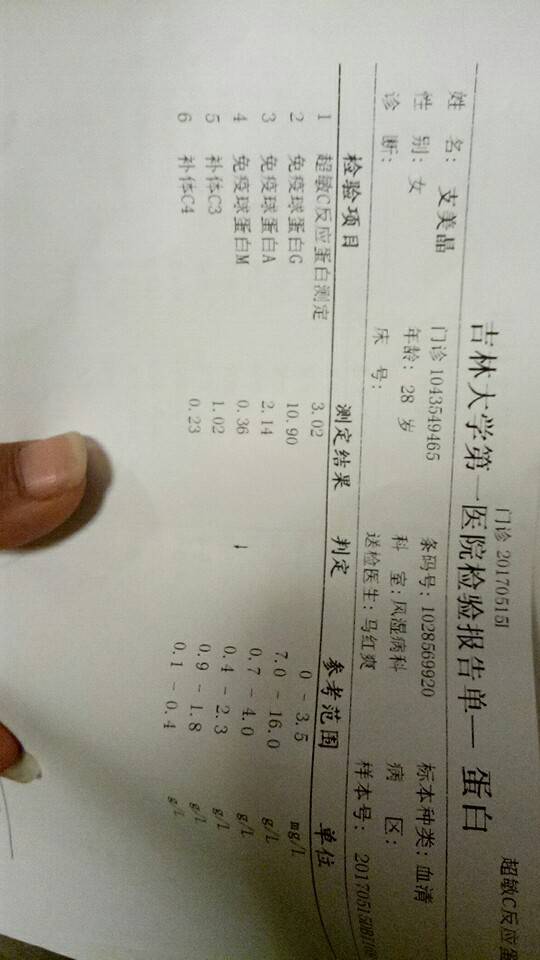 门诊 20170515I 超敏C反应蛋
吉林大学第一医院检验报告单— 蛋白
姓 名: 支美晶 门诊 1043549465 条码号: 1028569920 标本种类: 血清
性 别: 女 年龄: 28 岁 科 室: 风湿病科 病 区:
诊 断: 床 号: 送检医生: 马红爽 样本号:
检验项目 测定结果 判定 参考范围 单位
1 超敏C反应蛋白测定 3.02 0 - 3.5 mg/L
2 免疫球蛋白G 10.90 7.0 - 16.0 g/L
3 免疫球蛋白A 2.14 0.7 - 4.0 g/L
4 免疫球蛋白M 0.36 ↓ 0.4 - 2.3 g/L
5 补体C3 1.02 0.9 - 1.8 g/L
6 补体C4 0.23 0.1 - 0.4 g/L